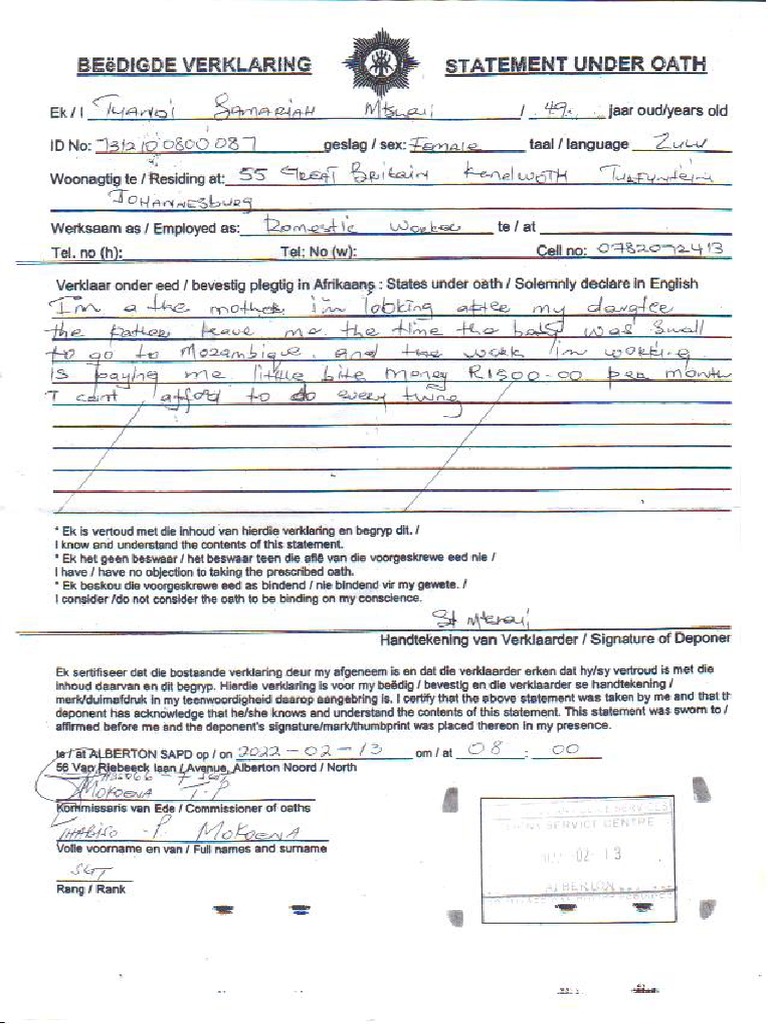 BEëDIGDE VERKLARING STATEMENT UNDER OATH
Ek / I Thandi Samariah / 49. jaar oud/years old
ID No: geslag / sex: Female taal / language Zulu
Woonagtig te / Residing at: 55 Great Britain Kendworth
Johannesburg
Werksaam as / Employed as: Domestic Worker te / at
Tel. no (h): Tel: No (w): Cell no: 0782072413
Verklaar onder eed / bevestig plegtig in Afrikaans : States under oath / Solemnly declare in English
I'm a the mother i'm looking after my
the father leave me the time the baby was small
to go to Mozambique. and the work i'm working
is paying me little bite money R1500-00 per month
I cant afford to do every thing
* Ek is vertoud met die inhoud van hierdie verklaring en begryp dit. /
I know and understand the contents of this statement.
* Ek het geen beswaar / het beswaar teen die aflê van die voorgeskrewe eed nie /
I have / have no objection to taking the prescribed oath.
* Ek beskou die voorgeskrewe eed as bindend / nie bindend vir my gewete. /
I consider /do not consider the oath to be binding on my conscience.
Handtekening van Verklaarder / Signature of Deponer
Ek sertifiseer dat die bostaande verklaring deur my afgeneem is en dat die verklaarder erken dat hy/sy vertroud is met die
inhoud daarvan en dit begryp. Hierdie verklaring is voor my beëdig / bevestig en die verklaarder se handtekening /
merk/duimafdruk in my teenwoordigheid daarop aangebring is. I certify that the above statement was taken by me and that th
deponent has acknowledge that he/she knows and understand the contents of this statement. This statement was sworn to /
affirmed before me and the deponent's signature/mark/thumbprint was placed thereon in my presence.
te / at ALBERTON SAPD op / on 2022-02-13 om / at 08 : 00
56 Van Riebeeck laan / Avenue, Alberton Noord / North
Mokoena T-P
Kommissaris van Ede / Commissioner of oaths
Thabiso -P. Mokoena
Volle voorname en van / Full names and surname
SGT
Rang / Rank
SERVICE CENTRE
02- 13
ALBERTON